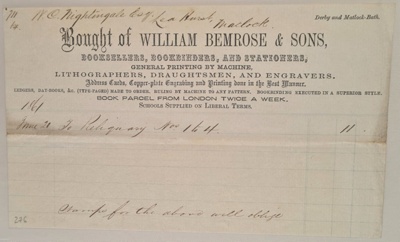 W. E. Nightingale Esq Lea Hurst, Matlock
Derby and Matlock-Bath.
Bought of WILLIAM BEMROSE & SONS,
BOOKSELLERS, BOOKBINDERS, AND STATIONERS,
GENERAL PRINTING BY MACHINE,
LITHOGRAPHERS, DRAUGHTSMEN, AND ENGRAVERS.
Address Cards, Copper-plate Engraving and Printing done in the Best Manner.
LEDGERS, DAY-BOOKS, &c. (TYPE-PAGED) MADE TO ORDER. RULING BY MACHINE TO ANY PATTERN. BOOKBINDING EXECUTED IN A SUPERIOR STYLE.
BOOK PARCEL FROM LONDON TWICE A WEEK.
SCHOOLS SUPPLIED ON LIBERAL TERMS.
1861
To Reliquary Nos 1 & 4 11
Stamps for the above will oblige